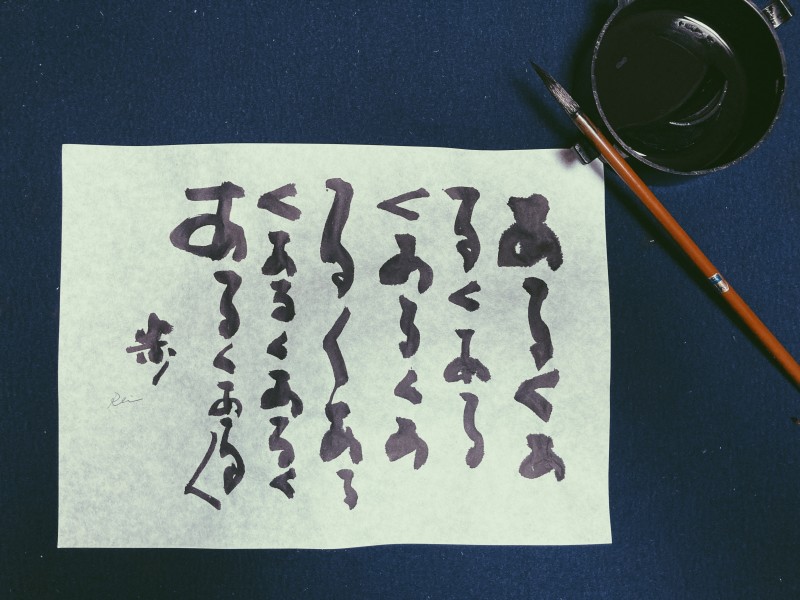 あるくあ
るくある
くあるくあ
るくある
くあるくあるく
あるくあるく
歩